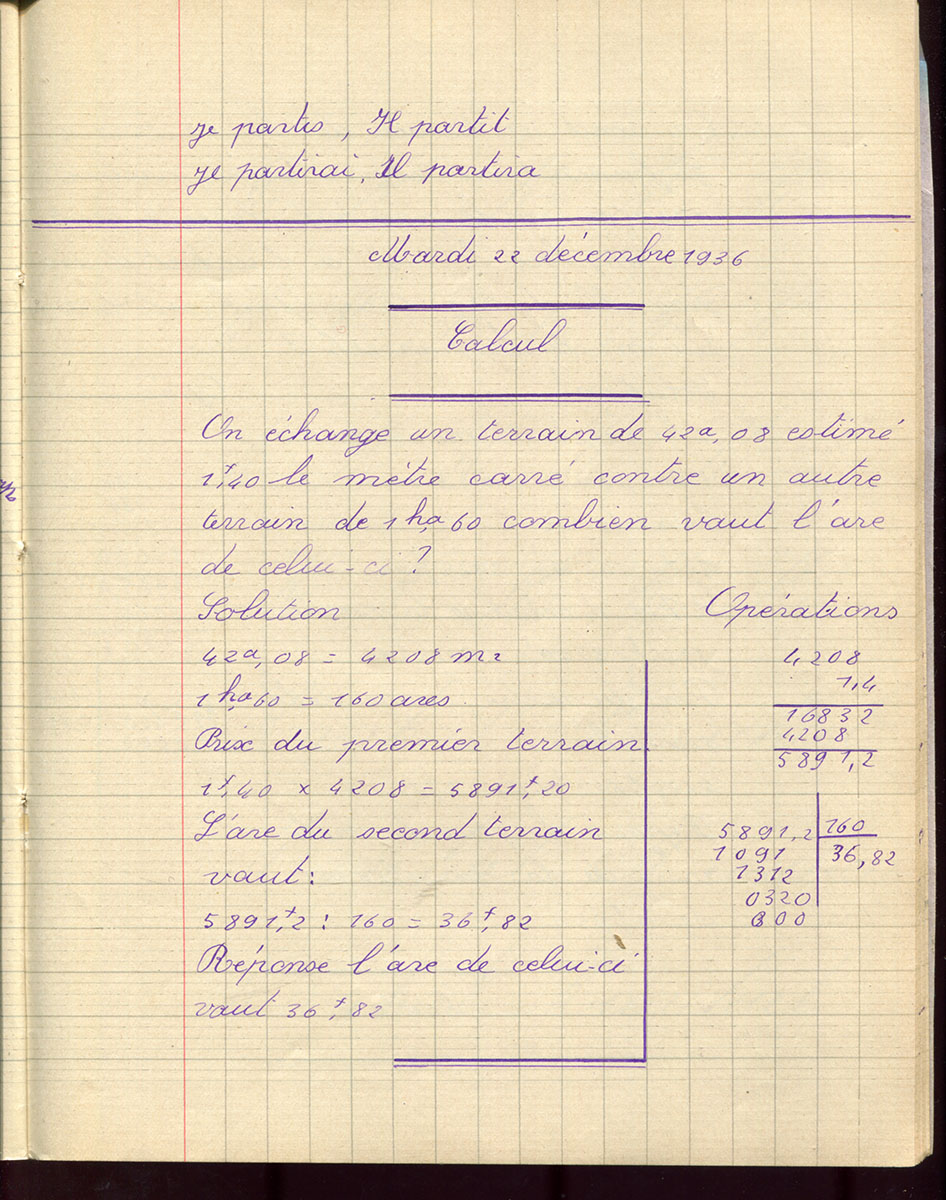 je partis, Il partit
je partirai, Il partira
Mardi 22 décembre 1936
Calcul
On échange un terrain de 42a,08 estimé
1f,40 le mètre carré contre un autre
terrain de 1ha,60 combien vaut l'are
de celui-ci ?
Solution
42a,08 = 4208 m2
1ha,60 = 160 ares
Prix du premier terrain
1f,40 x 4208 = 5891f,20
L'are du second terrain
vaut :
5891f,2 : 160 = 36f,82
Réponse l'are de celui-ci
vaut 36f,82
Opérations
4208
1,4
16832
4208
5891,2
5891,2 160
1091 36,82
1312
0320
000